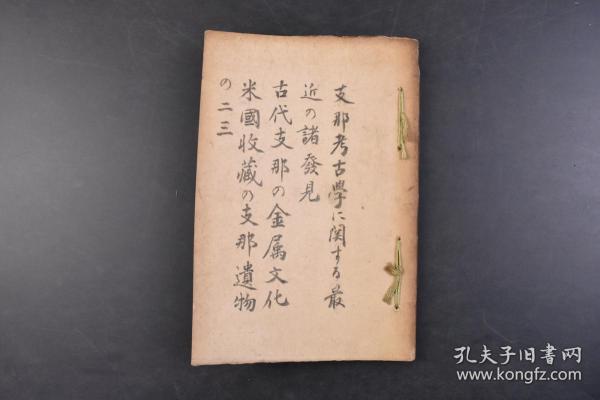 支那考古學に関する最
近の諸發見
古代支那の金属文化
米國收藏の支那遺物
の二三
孔夫子旧书网
www.kongfz.com